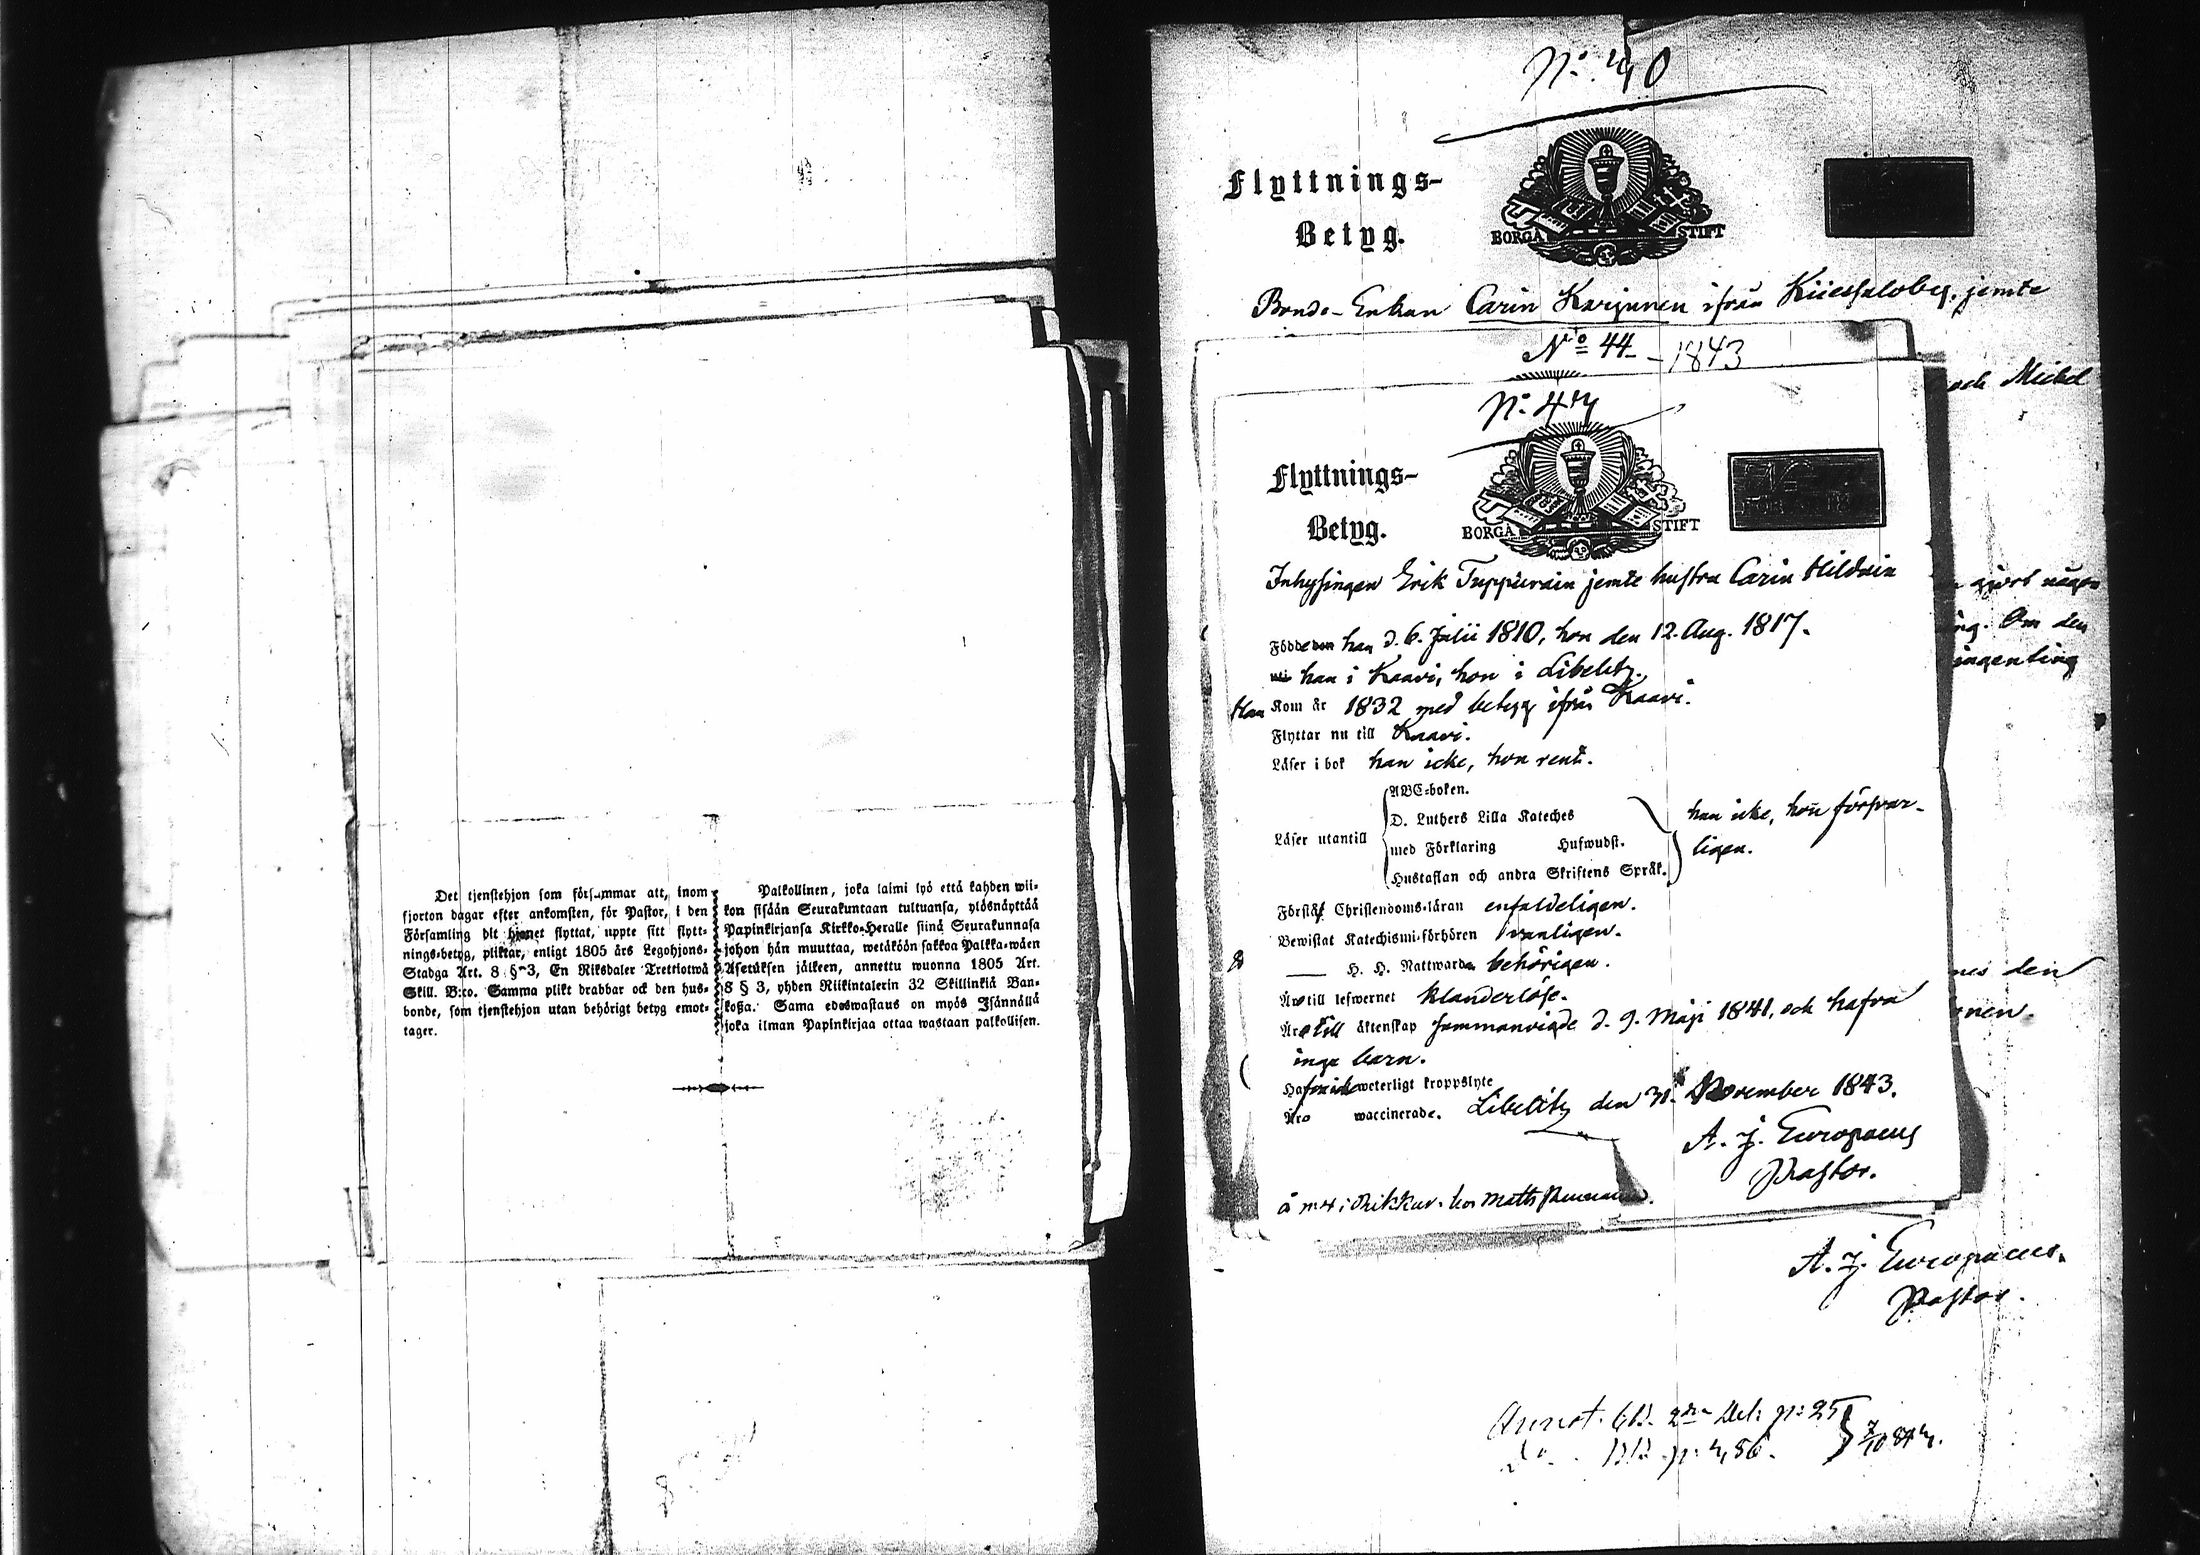 Det tjenstehjon som försummar att, inom
fjorton dagar efter ankomsten, för Pastor, i den
Församling dit hjonet flyttat, uppte sitt flytt-
nings-betyg, pliktar, enligt 1805 års Legohjons-
Stadga Art. 8 § 3, En Riksdaler Trettiotwå
Skill. B:co. Samma plikt drabbar ock den hus-
bonde, som tjenstehjon utan behörigt betyg emot-
tager.
Palkollinen, joka laimi lyö että kahden wii-
kon sisään Seurakuntaan tultuansa, ylösnäyttää
Papinkirjansa Kirkko-Heralle siinä Seurakunnasa
johon hän muuttaa, wetäköön sakkoa Palkka-wäen
Asetuksen jälkeen, annettu wuonna 1805 Art.
8 § 3, yhden Riikintalerin 32 Skillinkiä Ban-
koßa. Sama edeswastaus on myös Isännällä
joka ilman Papinkirjaa ottaa wastaan palkollisen.
No. 40
Flyttnings-
Betyg.
BORGÅ STIFT
Bonde-Enkan Carin Karjunen ifrån jemte
No 44 - 1843
och Michel
No. 47
Flyttnings-
Betyg.
BORGÅ STIFT
Inhysingen Erik Tuppurain jemte hustru Carin Hildnin
gjort någon
Födde den han d. 6. Julii 1810, hon den 12. Aug. 1817.
Om den
han i Kaavi, hon i Libelitz.
ingenting
Han Kom år 1832 med betyg ifrån Kaavi.
Flyttar nu till Kaavi.
Läser i bok han icke, hon rent.
ABC-boken.
D. Luthers Lilla Kateches
Läser utantill
med Förklaring Hufwudst.
Hustaflan och andra Skriftens Språk.
han icke, hon försvar-
ligen.
Förstå Christendoms-läran enfaldeligen.
Bewistat Katechismi-förhören vanligen.
H. H. Nattward behörigen.
den
Äro till lefwernet klanderlöse.
Äro till äktenskap sammanvigde d. 9. Maji 1841, och hafva
inga barn.
Hafva icke weterligt kroppslyte
Äro waccinerade. Libelitz den 31. November 1843.
A. J. Europaeus
Pastor.
hos Matts
A. J. Europaeus.
Pastor.
Annot.